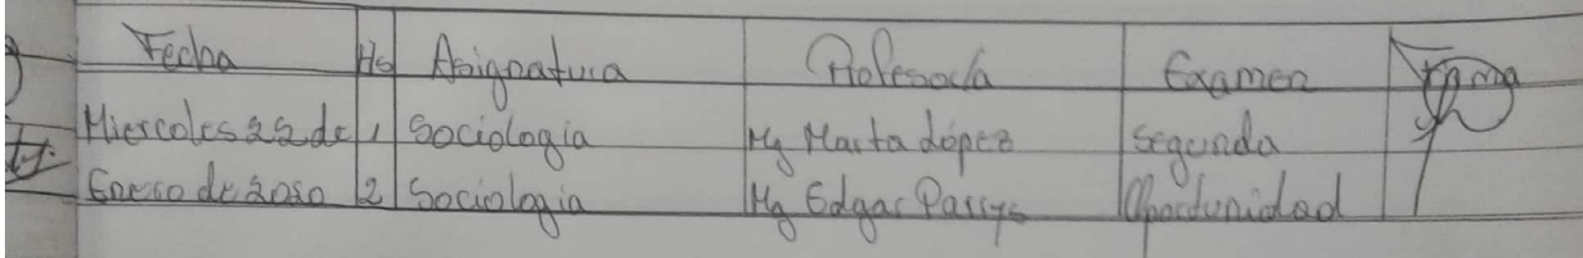 Fecha Hs Asignatura Profesor/a Examen Firma
Miercoles 22 de 1 Sociologia Mg Marta López Segunda
Enero de 2020 2 Sociologia Mg Edgar Oportunidad